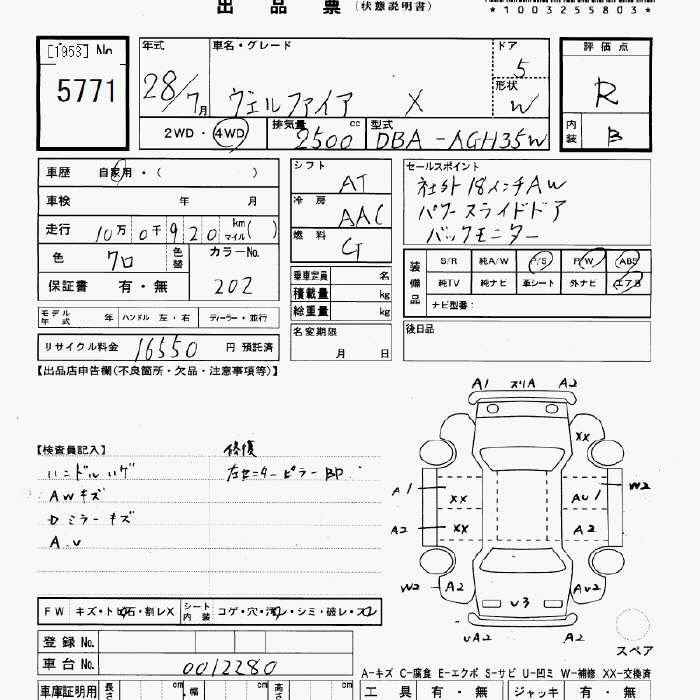 出品票 (状態説明書)
*1003255803*
[1953] No.
5771
年式 28/7月
車名・グレード ヴェルファイア X
ドア 5
形状 W
評価点 R
内装 B
2WD・4WD
排気量 2500 cc
型式 DBA-AGH35W
車歴 自家用・( )
車検 年 月
走行 10万0千920 km マイル( )
色 クロ 色替
カラーNo. 202
保証書 有・無
シフト AT
冷房 AAC
燃料 G
乗車定員 名
積載量 kg
総重量 kg
名変期限 月 日
セールスポイント
社外18インチAW
パワースライドドア
バックモニター
装備品
S/R 純A/W P/S P/W ABS
純TV 純ナビ 革シート 外ナビ エアB
ナビ型番:
後日品
モデル年式 年 ハンドル 左・右 ディーラー・並行
リサイクル料金 16550 円 預託済
【出品店申告欄(不良箇所・欠品・注意事項等)】
【検査員記入】 修復
ハンドルハゲ 左センターピラーBP
AWキズ
ミラーキズ
A.U
A1 ズリA A2
XX
A1 XX AU1 W2
A2 XX A2
W2 A2 U3 AU2
UA2 A2
スペア
FW キズ・トビ石・割レX シート内装 コゲ・穴・汚レ・シミ・破レ・スレ
登録No.
車台No. 0012280
A-キズ C-腐食 E-エクボ S-サビ U-凹ミ W-補修 XX-交換済
車庫証明用 長さ cm 幅 cm 高さ cm
工具 有・無 ジャッキ 有・無